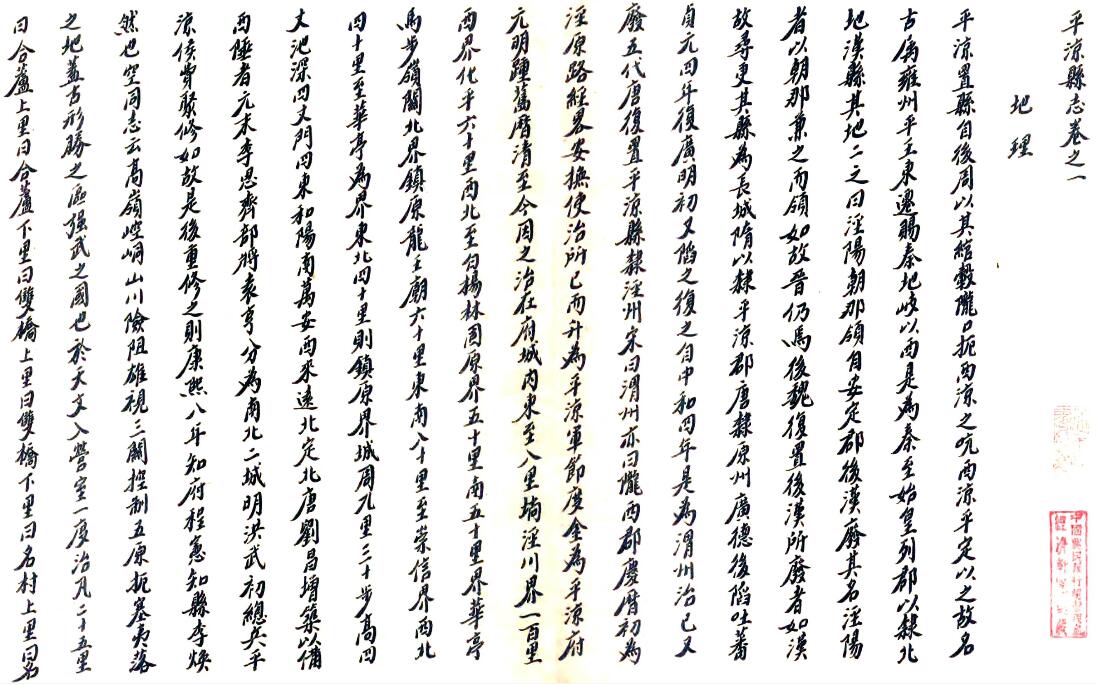 平涼縣志卷之一
地理
平涼置縣自後周以其綰轂隴口扼西涼之吭西涼平定以之故名
古為雍州平王東遷賜秦地岐以西是為秦至始皇列郡以隸北
地漢縣其地二之曰涇陽朝那領自安定郡後漢廢其名涇陽
者以朝那兼之而領如故晉仍馬後魏復置後漢所廢者如漢
故尋更其縣為長城隋以隸平涼郡唐隸原州廣德後陷吐蕃
貞元四年復廣明初又陷之復之自中和四年是為渭州治已又
廢五代唐復置平涼縣隸涇州宋曰渭州亦曰隴西郡慶曆初為
涇原路經畧安撫使治所已而升為平涼軍節度金為平涼府
元明踵舊曆清至今因之治在府城内東至八里塬涇川界一百里
西界化平六十里西北至白楊林固原界五十里南五十里界華亭
馬步嶺關北界鎮原龍王廟六十里東南八十里至崇信界西北
四十里至華亭為界東北四十里則鎮原界城周九里三十步高四
丈池深四丈門四東和陽南萬安西來遠北定北唐劉昌增築以備
西陲者元末李思齊部將袁亨分為南北二城明洪武初總兵平
涼侯費聚修如故是後重修之則康熙八年知府程憲知縣李煥
然也空同志云高嶺崆峒山川險阻雄視三關控制五原扼塞夷落
之地蓋古形勝之區强武之國也於天文入營室一度治凡二十五里
曰合蘆上里曰合蘆下里曰雙橋上里曰雙橋下里曰名村上里曰名